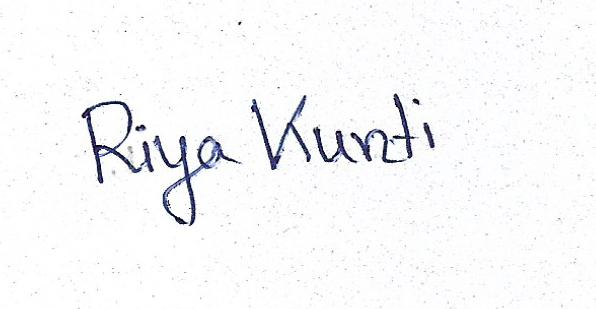 Riya Kunti